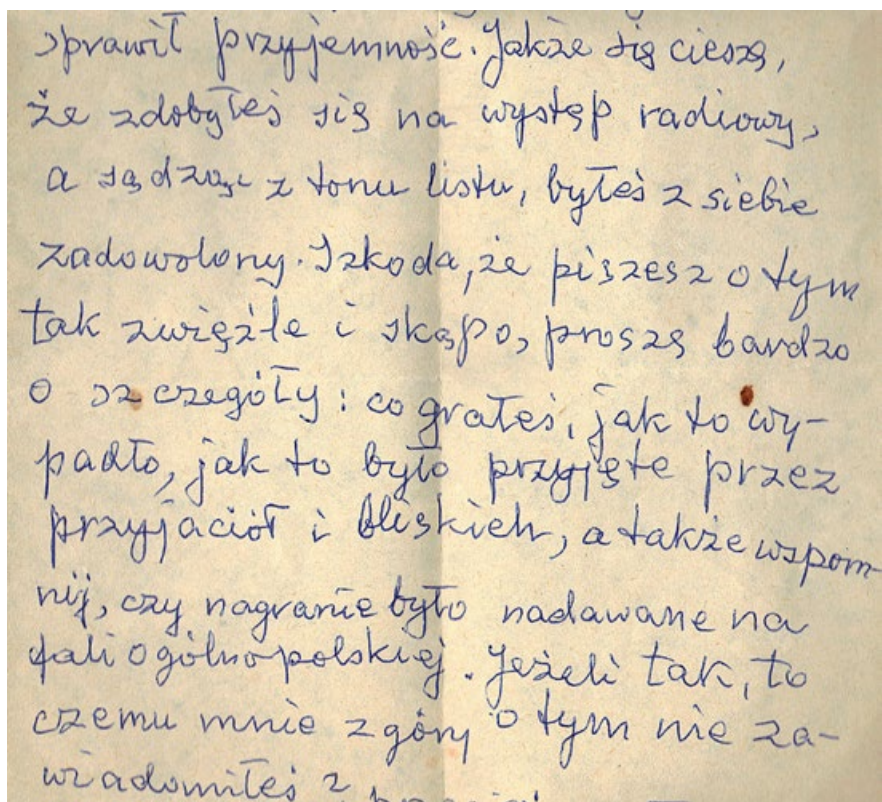 sprawił przyjemność. Jakże się cieszę,
że zdobyłeś się na występ radiowy,
a sądząc z tonu listu, byłeś z siebie
zadowolony. Szkoda, że piszesz o tym
tak zwięźle i skąpo, proszę bardzo
o szczegóły: co grałeś, jak to wy-
padło, jak to było przyjęte przez
przyjaciół i bliskich, a także wspom-
nij, czy nagranie było nadawane na
fali ogólnopolskiej. Jeżeli tak, to
czemu mnie z góry o tym nie za-
wiadomiłeś?